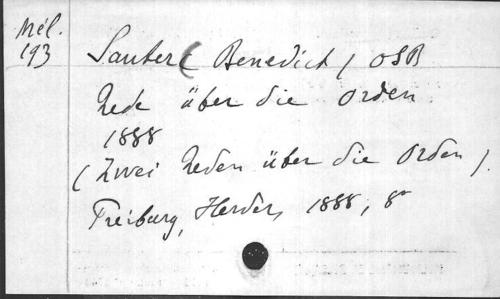 Mél.
193
Sauter ( Benedict ) OSB
Rede über die Orden
1888
( Zwei Reden über die Orden ).
Freiburg, Herder, 1888, 8°